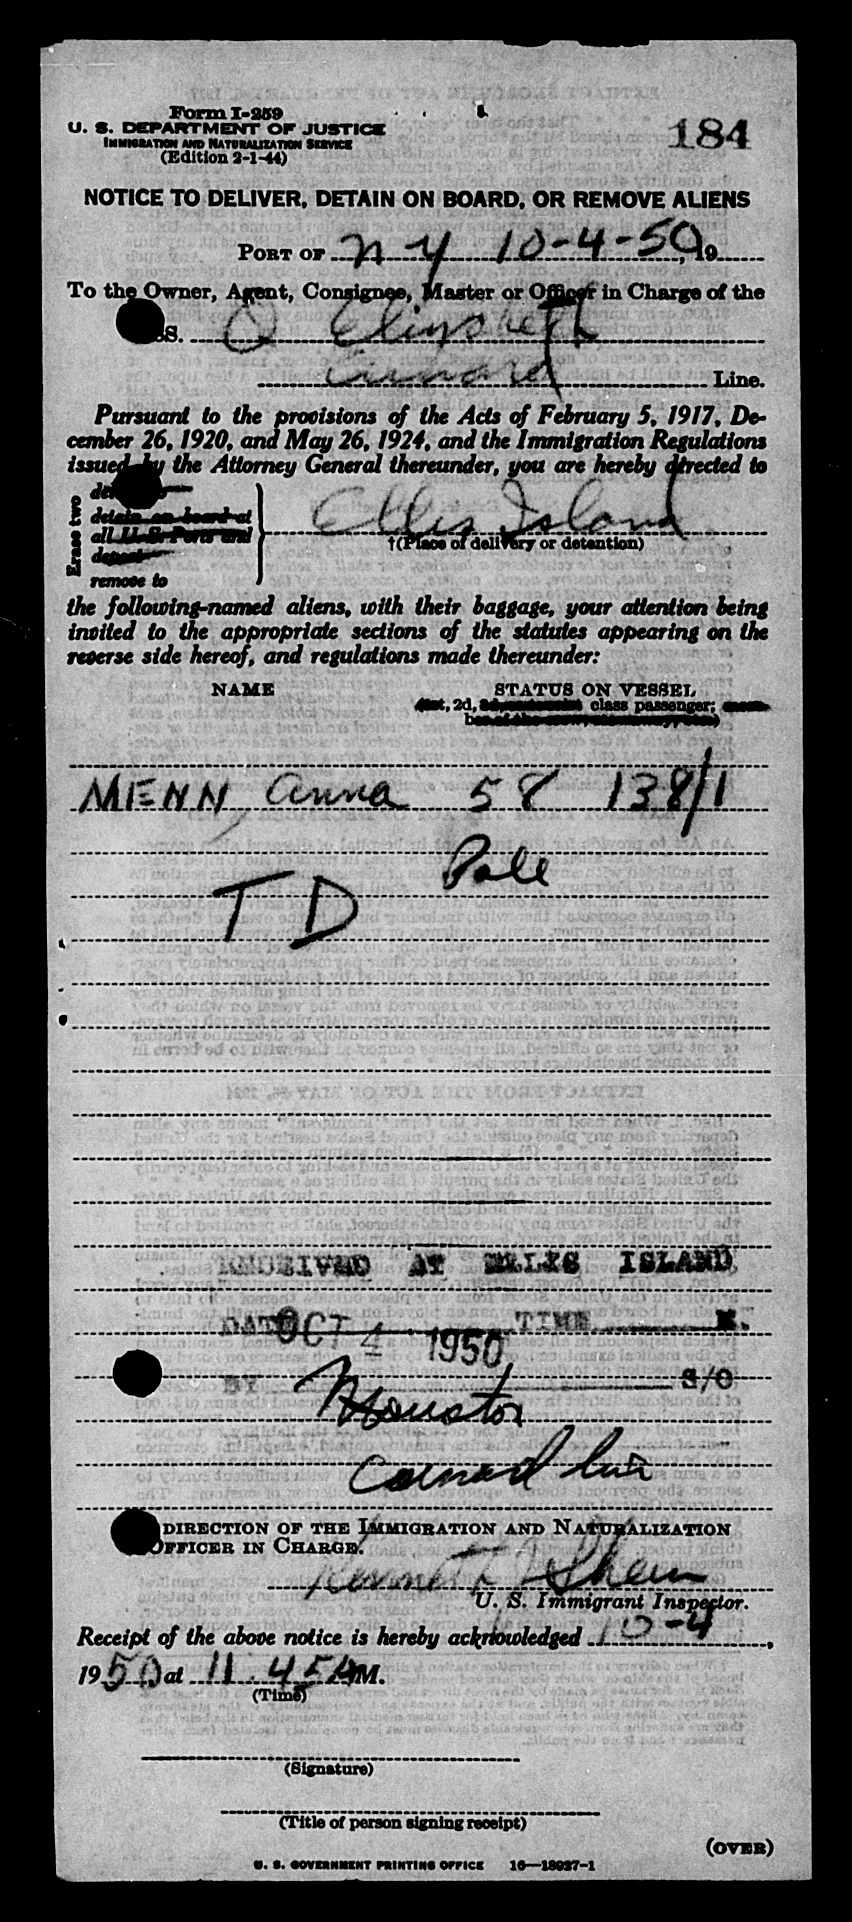 Form I-259
U. S. DEPARTMENT OF JUSTICE
IMMIGRATION AND NATURALIZATION SERVICE
(Edition 2-1-44)
184
NOTICE TO DELIVER, DETAIN ON BOARD, OR REMOVE ALIENS
PORT OF N Y 10-4-50, 19
To the Owner, Agent, Consignee, Master or Officer in Charge of the
SS. Q Elizabeth
Cunard Line.
Pursuant to the provisions of the Acts of February 5, 1917, De-
cember 26, 1920, and May 26, 1924, and the Immigration Regulations
issued by the Attorney General thereunder, you are hereby directed to
Erase two
detain on board at
all U. S. Ports and
remove to
Ellis Island
†(Place of delivery or detention)
the following-named aliens, with their baggage, your attention being
invited to the appropriate sections of the statutes appearing on the
reverse side hereof, and regulations made thereunder:
NAME STATUS ON VESSEL
1st, 2d, class passenger;
MENN, Anna 58 138/1
Pole
T D
RECEIVED AT ELLIS ISLAND
DATE OCT 4 1950 TIME M.
BY S/O
Houston
Cunard Line
DIRECTION OF THE IMMIGRATION AND NATURALIZATION
OFFICER IN CHARGE.
Kenneth
U. S. Immigrant Inspector.
Receipt of the above notice is hereby acknowledged 10-4,
1950 at 11:45 A M.
(Time)
(Signature)
(Title of person signing receipt)
(OVER)
U. S. GOVERNMENT PRINTING OFFICE 16—18927-1